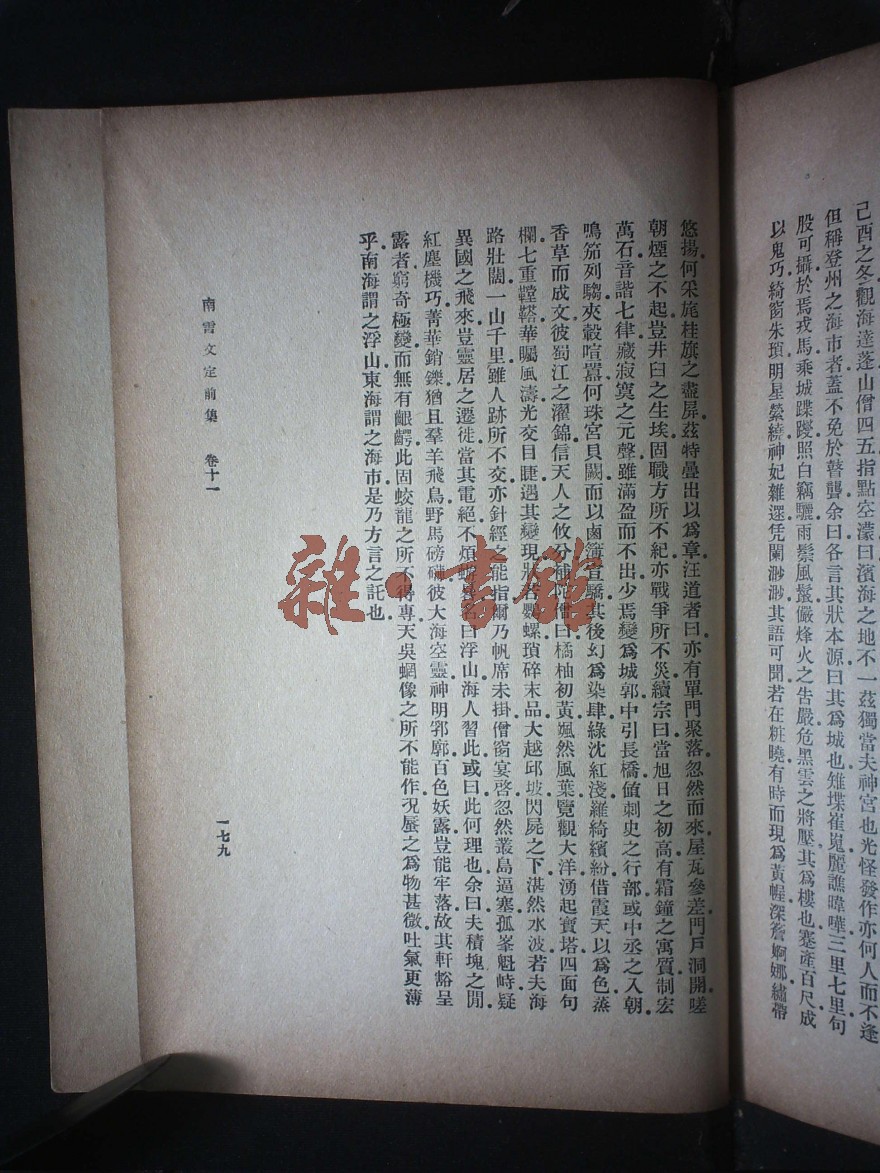 己酉之冬觀海達蓬山僧四五指點空濛曰濱海之地不一茲獨當夫神宮也光怪發作亦何人而不逢
但稱登州之海市者蓋不免於瞽聾余曰各言其狀本源曰其爲城也雉堞崔嵬麗譙暐曄三里七里句
股可攝於焉戎馬乘城蹀躞照白竊驪雨鬃風鬣儼烽火之告嚴危黑雲之將壓其爲樓也蹇產百尺成
以鬼巧綺窗朱瑣明星縈繞神妃雜遝凭闌渺渺其語可聞若在粧曉有時而現爲黃幄深簷婀娜繡帶
悠揚何采旄桂旗之盡屏茲特疊出以爲章汪道者曰亦有單門聚落忽然而來屋瓦參差門戶洞開嗟
朝煙之不起豈井臼之生埃固職方所不紀亦戰爭所不災續宗曰當旭日之初高有霜鐘之寓質制宏
萬石音諧七律藏寂寞之元聲雖滿盈而不出少焉變爲城郭中引長橋値刺史之行部或中丞之入朝
鳴笳列騶夾轂喧囂何珠宮貝闕而以鹵簿宣驕其後幻爲染肆綠沈紅淺羅綺繽紛借霞天以爲色蒸
香草而成文彼蜀江之濯錦信天人之攸分補陀僧曰橘柚初黃颯然風葉覽觀大洋湧起寶塔四面句
欄七重鞺鞳華矚風濤光交目睫遇其變現狀者鸚螺瑣碎末品大越邱坡閃屍之下湛然水波若夫海
路壯闊一山千里雖人跡所不交亦針經之能指爾乃帆席未掛僧窗宴啓忽然叢島逼塞孤峯魁峙疑
異國之飛來豈靈居之遷徙當其電絕不煩名曰浮山海人習此或曰此何理也余曰夫積塊之閒
紅塵機巧菁華銷鑠猶且羣羊飛鳥野馬磅礴彼大海空靈神明郛廓百色妖露豈能牢落故其軒豁呈
露者窮奇極變而無有齦齶此固蛟龍之所不得專天吳蝄像之所不能作況蜃之爲物甚微吐氣更薄
乎南海謂之浮山東海謂之海市是乃方言之託也
南雷文定前集 卷十一
一七九
雜·書館